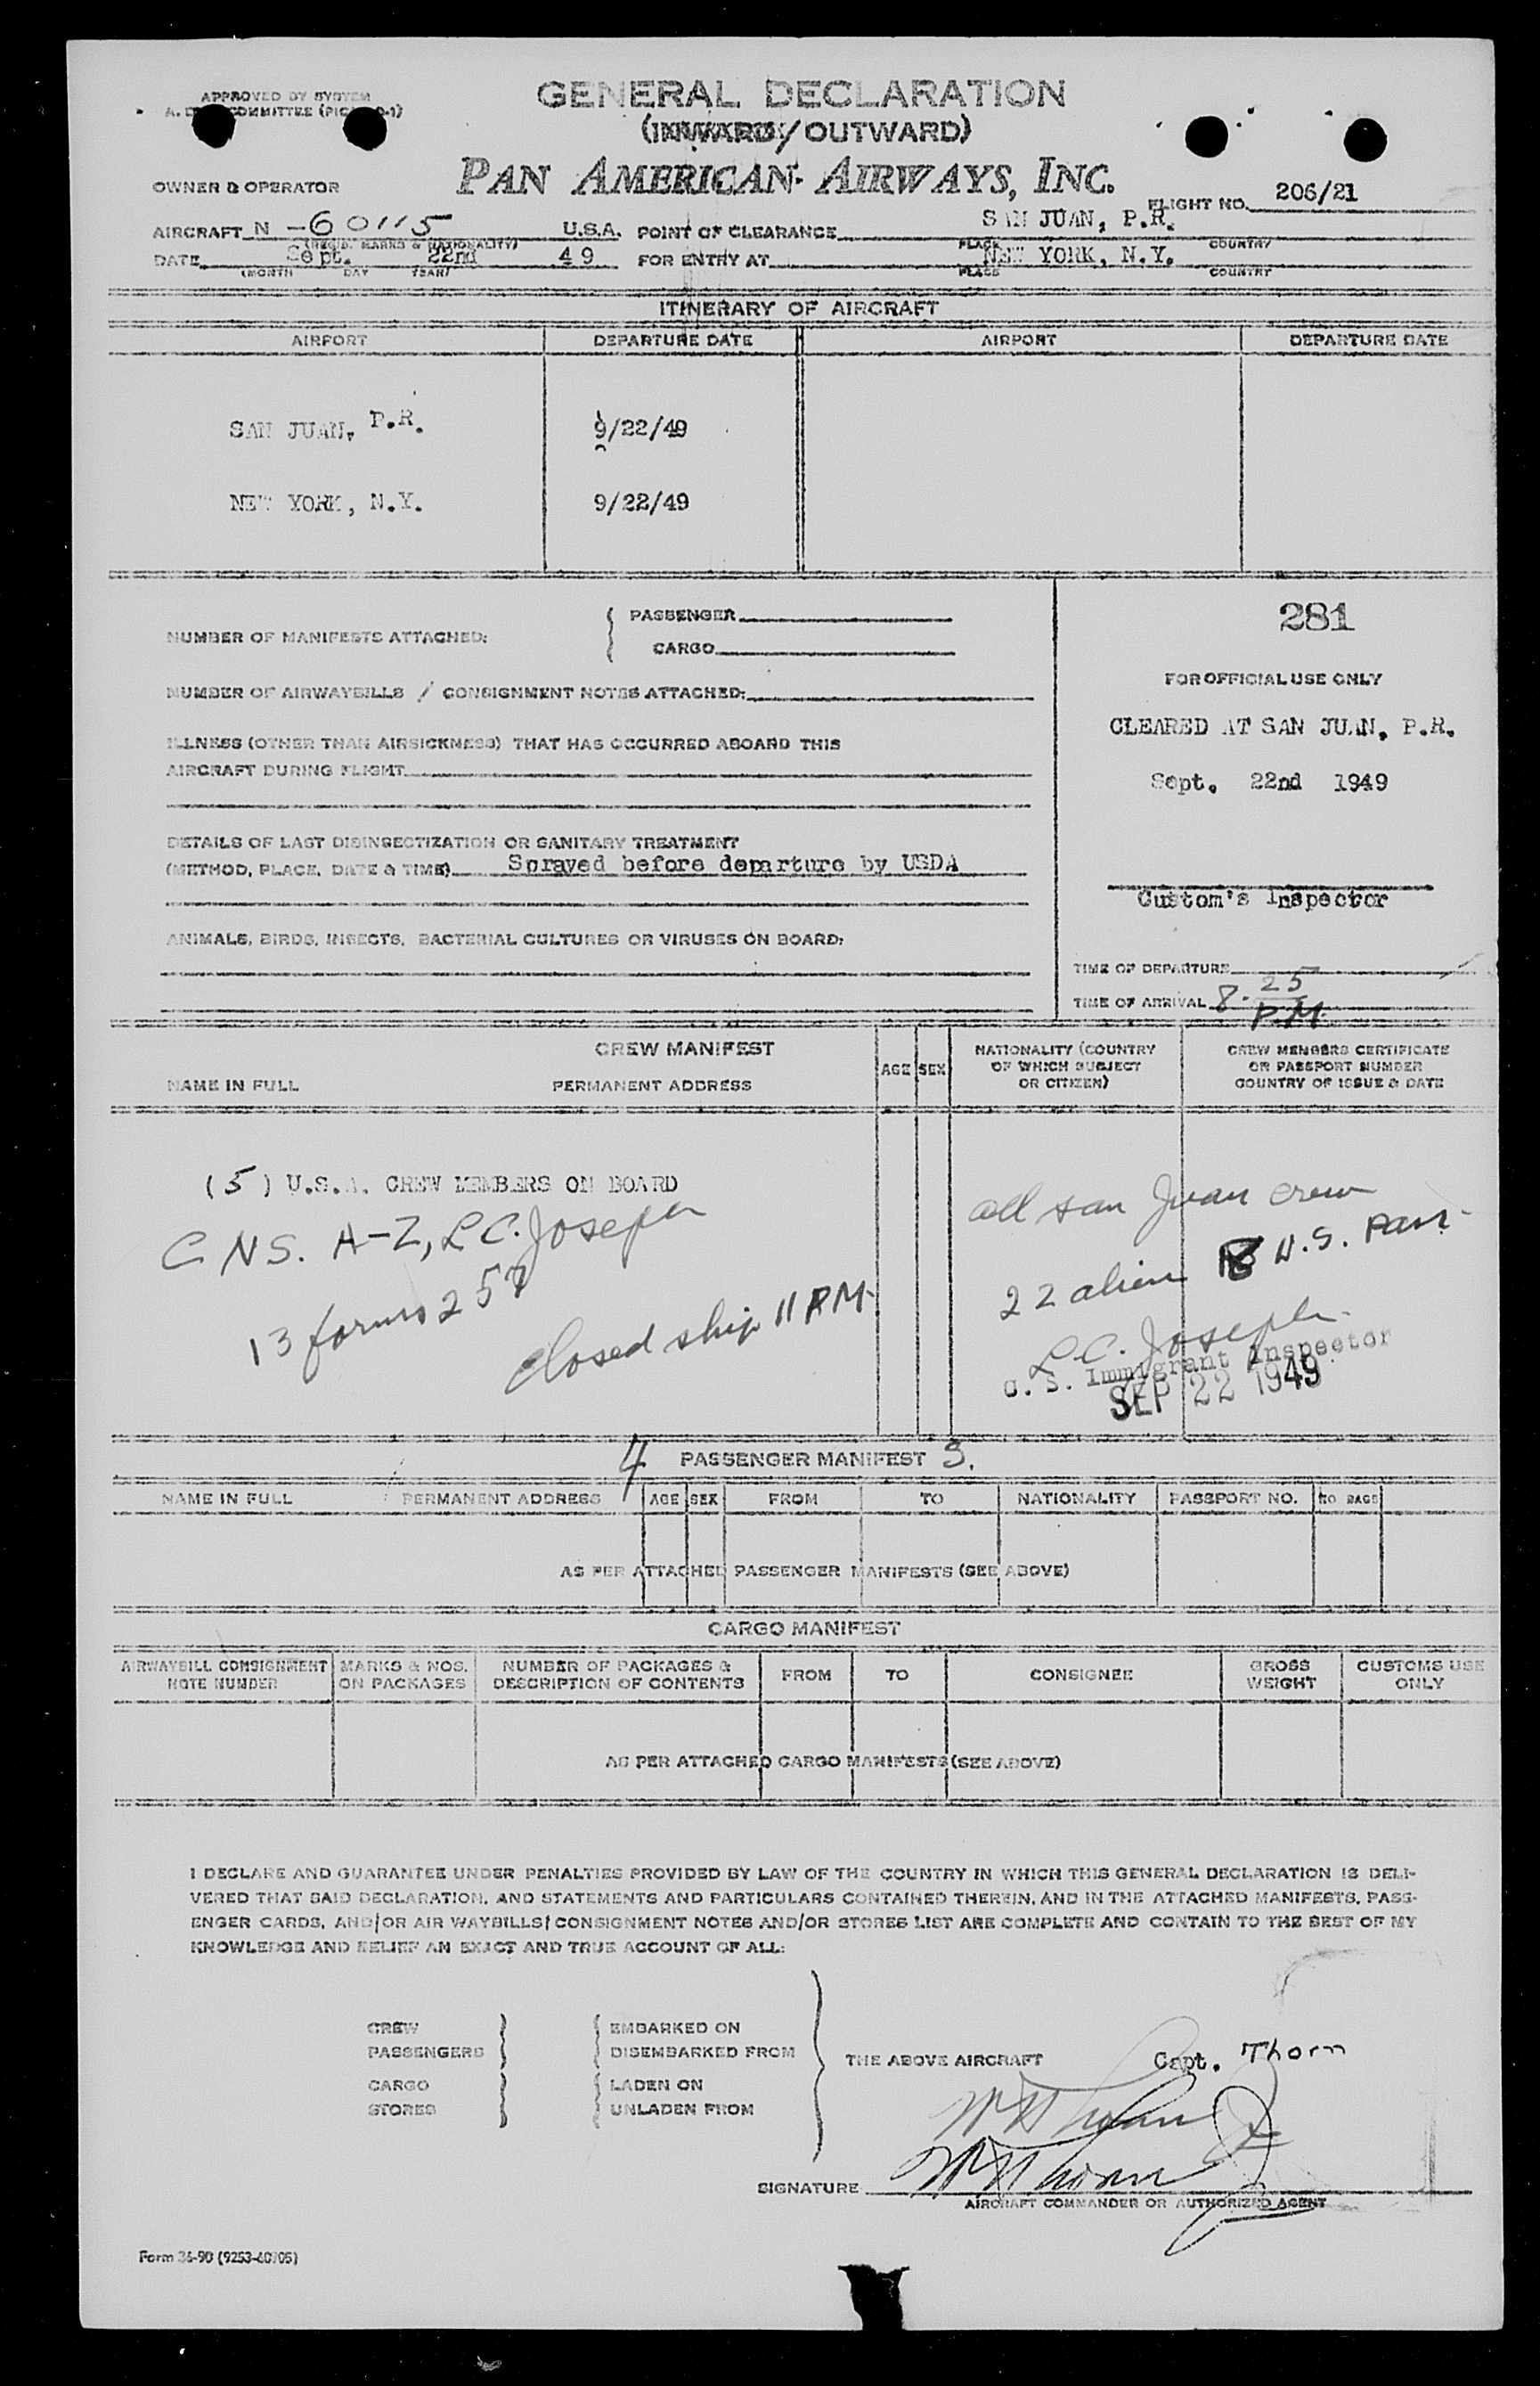 APPROVED BY SYSTEM
COMMITTEE
GENERAL DECLARATION
(INWARD/OUTWARD)
PAN AMERICAN AIRWAYS, INC.
OWNER & OPERATOR
FLIGHT NO. 206/21
AIRCRAFT N -60115 U.S.A. POINT OF CLEARANCE SAN JUAN, P.R.
(REG'D. MARKS & NATIONALITY) PLACE COUNTRY
DATE Sept. 22nd 49 FOR ENTRY AT NEW YORK, N.Y.
(MONTH DAY YEAR) PLACE COUNTRY
ITINERARY OF AIRCRAFT
AIRPORT DEPARTURE DATE AIRPORT DEPARTURE DATE
SAN JUAN, P.R. 9/22/49
NEW YORK, N.Y. 9/22/49
NUMBER OF MANIFESTS ATTACHED:
PASSENGER
CARGO
NUMBER OF AIRWAYBILLS / CONSIGNMENT NOTES ATTACHED:
ILLNESS (OTHER THAN AIRSICKNESS) THAT HAS OCCURRED ABOARD THIS
AIRCRAFT DURING FLIGHT
DETAILS OF LAST DISINSECTIZATION OR SANITARY TREATMENT
(METHOD, PLACE, DATE & TIME) Sprayed before departure by USDA
ANIMALS, BIRDS, INSECTS, BACTERIAL CULTURES OR VIRUSES ON BOARD:
281
FOR OFFICIAL USE ONLY
CLEARED AT SAN JUAN, P.R.
Sept. 22nd 1949
Custom's Inspector
TIME OF DEPARTURE
TIME OF ARRIVAL 8.25 P.M.
CREW MANIFEST
NAME IN FULL PERMANENT ADDRESS AGE SEX
NATIONALITY (COUNTRY
OF WHICH SUBJECT
OR CITIZEN)
CREW MEMBERS CERTIFICATE
OR PASSPORT NUMBER
COUNTRY OF ISSUE & DATE
(5) U.S.A. CREW MEMBERS ON BOARD
C N S. A-Z, L C. Joseph
13 forms 257
Closed ship 11 PM
all san Juan crew
22 alien 18 U.S. Pass.
L.C. Joseph
U. S. Immigrant Inspector
SEP 22 1949
4 PASSENGER MANIFEST S.
NAME IN FULL PERMANENT ADDRESS AGE SEX FROM TO NATIONALITY PASSPORT NO. NO BAGS
AS PER ATTACHED PASSENGER MANIFESTS (SEE ABOVE)
CARGO MANIFEST
AIRWAYBILL CONSIGNMENT
NOTE NUMBER
MARKS & NOS.
ON PACKAGES
NUMBER OF PACKAGES &
DESCRIPTION OF CONTENTS
FROM TO CONSIGNEE
GROSS
WEIGHT
CUSTOMS USE
ONLY
AS PER ATTACHED CARGO MANIFESTS (SEE ABOVE)
I DECLARE AND GUARANTEE UNDER PENALTIES PROVIDED BY LAW OF THE COUNTRY IN WHICH THIS GENERAL DECLARATION IS DELI-
VERED THAT SAID DECLARATION, AND STATEMENTS AND PARTICULARS CONTAINED THEREIN, AND IN THE ATTACHED MANIFESTS, PASS-
ENGER CARDS, AND/OR AIR WAYBILLS/CONSIGNMENT NOTES AND/OR STORES LIST ARE COMPLETE AND CONTAIN TO THE BEST OF MY
KNOWLEDGE AND BELIEF AN EXACT AND TRUE ACCOUNT OF ALL:
CREW
PASSENGERS
CARGO
STORES
EMBARKED ON
DISEMBARKED FROM
LADEN ON
UNLADEN FROM
THE ABOVE AIRCRAFT
Capt. Thorn
SIGNATURE
AIRCRAFT COMMANDER OR AUTHORIZED AGENT
Form 36-90 (9253-40705)